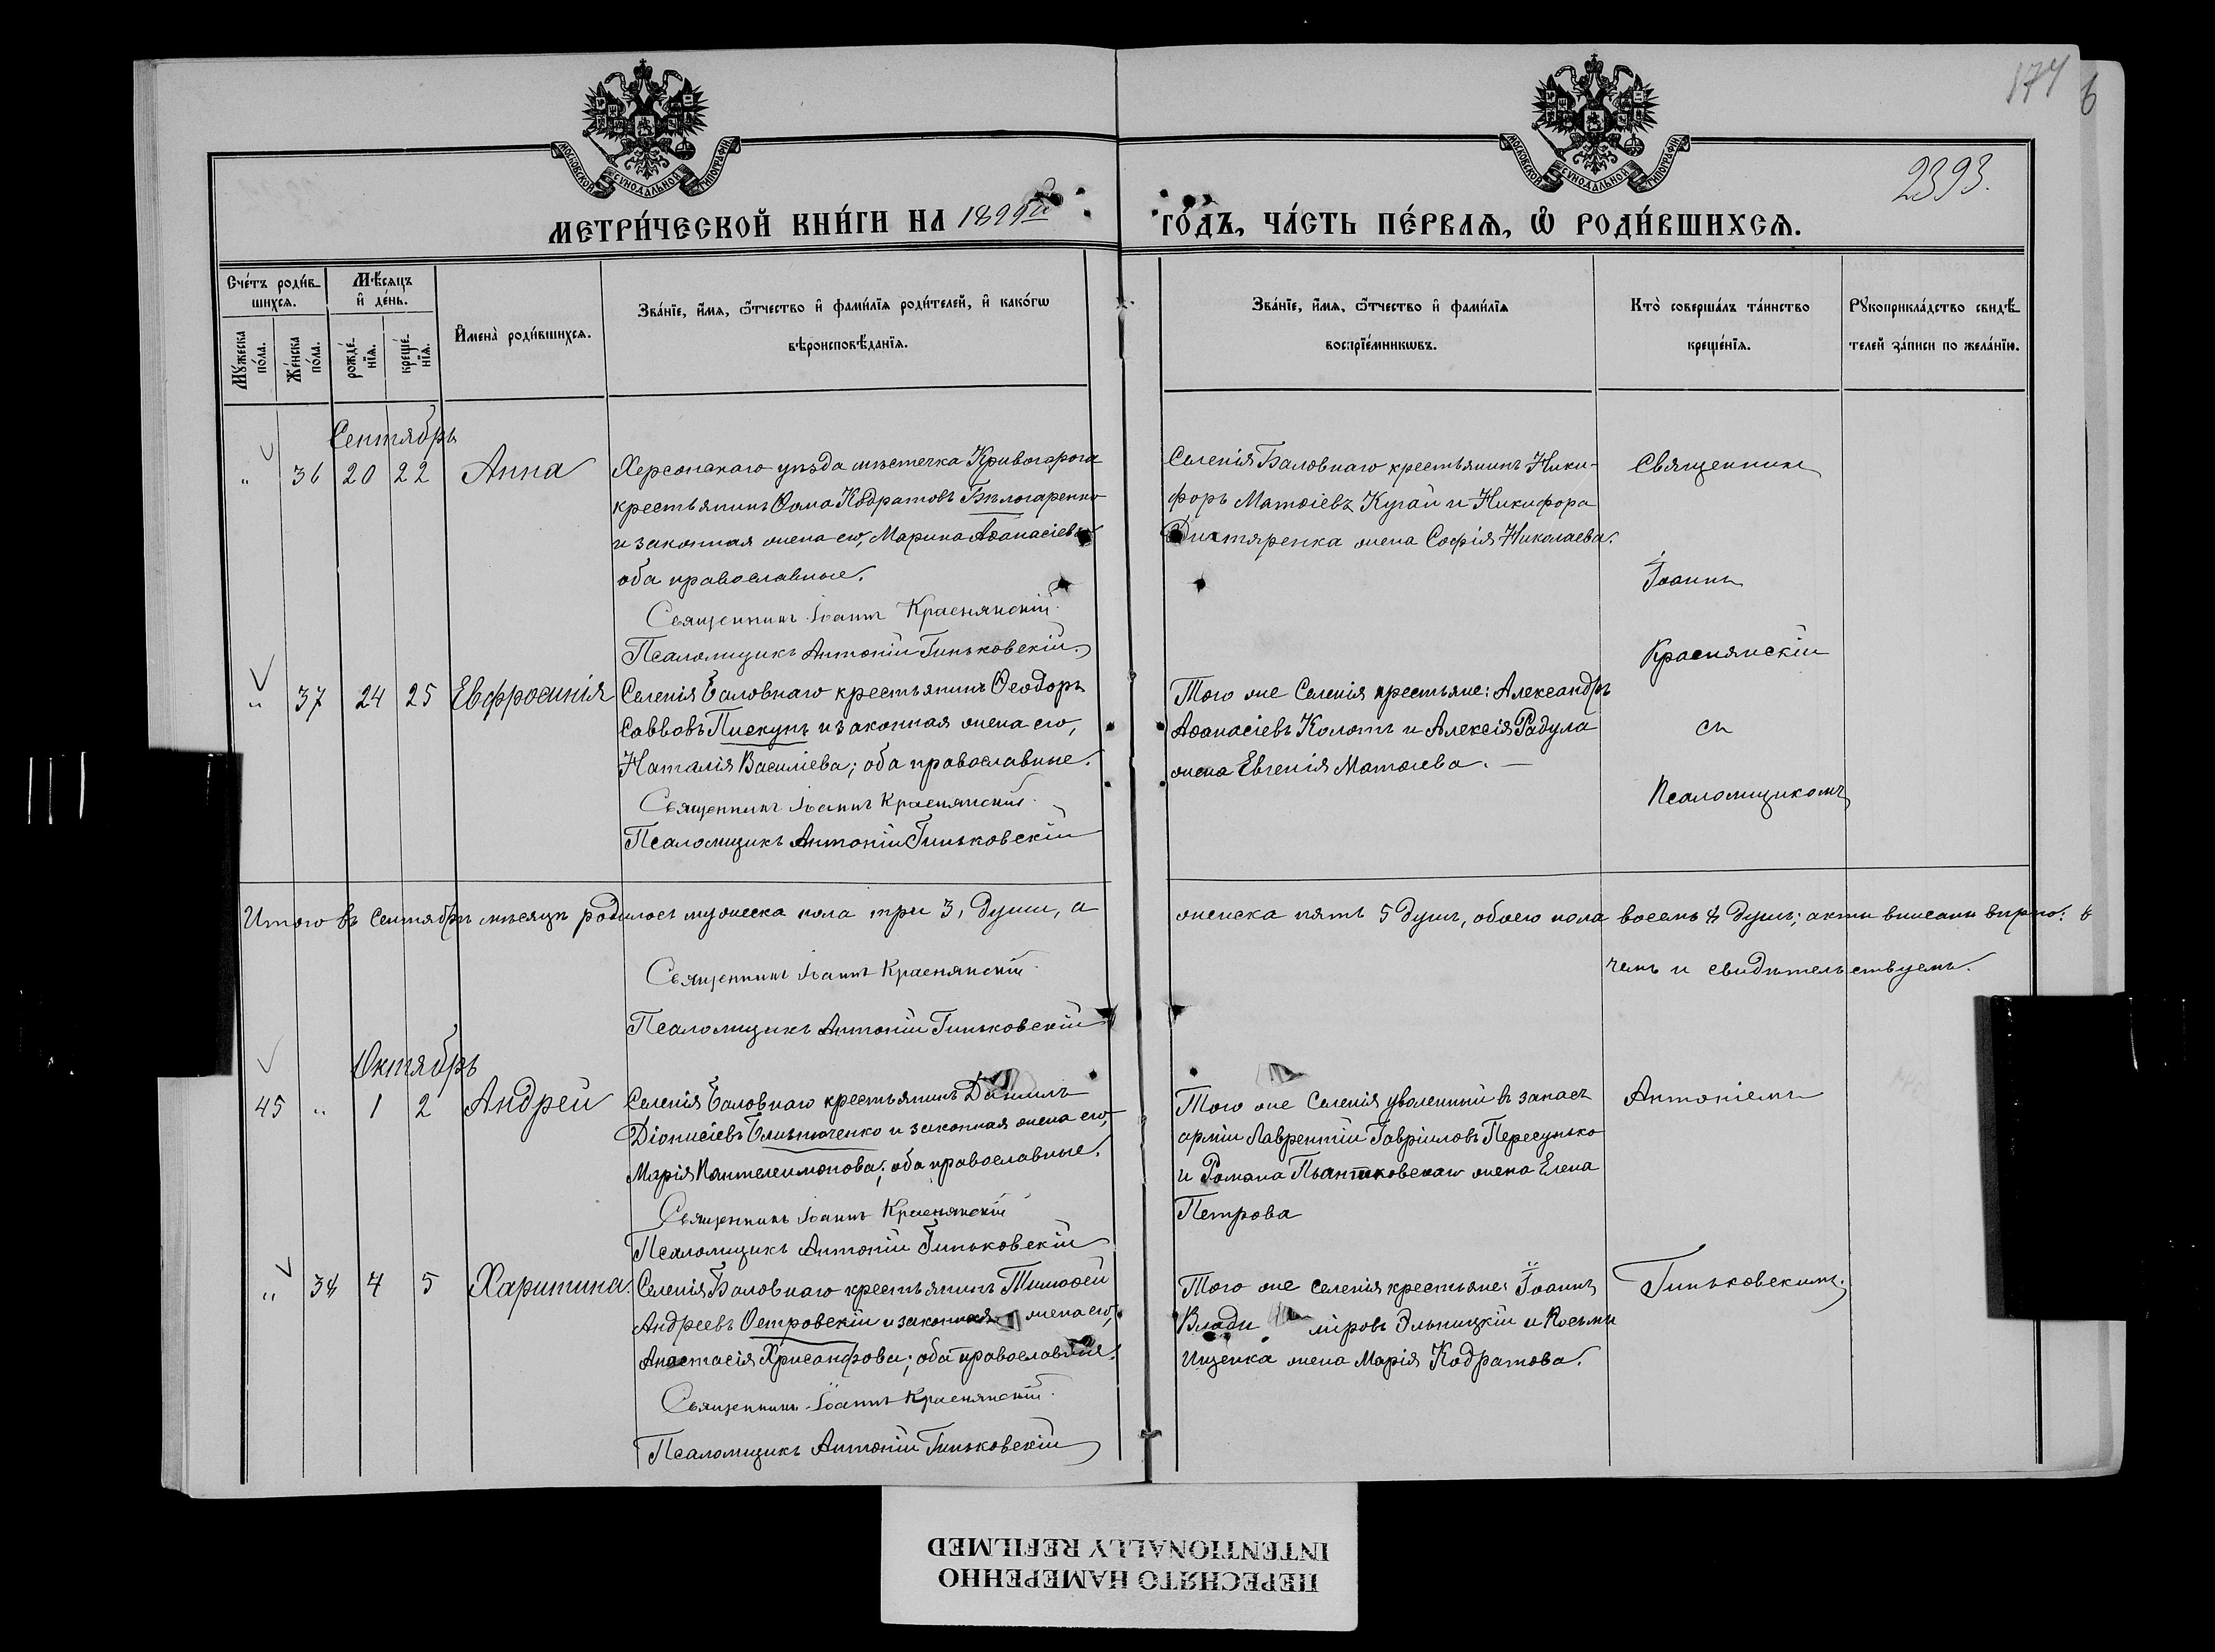 174
6
2393.
МОСКОВСКОЙ СУНОДАЛЬНОЙ ТИПОГРАФІИ
МОСКОВСКОЙ СУНОДАЛЬНОЙ ТИПОГРАФІИ
МЕТРИ́ЧЕСКОЙ КНИ́ГИ НА 1899й ГО́ДЪ, ЧА́СТЬ ПЕ́РВАѦ, Ѡ҆ РОДИ́ВШИХСѦ.
Сче́тъ роди́в-
шихся.
Мѣ́сяцъ
и҆ де́нь.
Мꙋ́жеска по́ла.
Же́нска по́ла.
рожде́нїя.
креще́нїя.
И҆мена̀ роди́вшихся.
Зва́нїе, и҆́мя, ѻ҆́тчество и҆ фами́лїя роди́телей, и҆ како́гѡ
вѣроисповѣ́данїя.
Зва́нїе, и҆́мя, ѻ҆́тчество и҆ фами́лїя
воспрїе́мникѡвъ.
Кто̀ соверша́лъ та́инство
креще́нїя.
Рꙋкоприкла́дство свидѣ́-
телей за́писи по жела́нїю.
Сентябрь
" 36 20 22 Анна
Херсонскаго уѣзда мѣстечка Кривогорога
крестьянинъ Ѳома Кодратовъ Бѣлогаренко
и законная жена его, Марина Аѳанасіева
оба православные.
Священникъ Іоаннъ Краснянскій.
Псаломщикъ Антоній Гиньковскій.
Селенія Баловнаго крестьянинъ Ники-
форъ Матѳіевъ Кугай и Никифора
Дихтяренка жена Софія Николаева.
Священникъ
Іоаннъ
Краснянскій
съ
Псаломщикомъ
" 37 24 25 Евфросинія
Селенія Баловнаго крестьянинъ Ѳеодоръ
Саввовъ Пискунъ и законная жена его,
Наталія Василіева; оба православные.
Священникъ Іоаннъ Краснянскій.
Псаломщикъ Антоній Гиньковскій
Того же Селенія крестьяне: Александръ
Аѳанасіевъ Колотъ и Алексія Радула
жена Евгенія Матѳіева. —
Итого въ Сентябрѣ мѣсяцѣ родилось мужеска пола три 3, души, а женска пять 5 душъ, обоего пола восемь 8 душъ; акты вписаны вѣрно: в
чемъ и свидѣтельствуемъ.
Священникъ Іоаннъ Краснянскій.
Псаломщикъ Антоній Гиньковскій
Октябрь
45 " 1 2 Андрей
Селенія Баловнаго крестьянинъ Даніилъ
Діонисіевъ Близнюченко и законная жена его,
Марія Пантелеимонова; оба православные.
Священникъ Іоаннъ Краснянскій
Псаломщикъ Антоній Гиньковскій
Того же Селенія уволенный въ запасъ
арміи Лаврентій Гавріиловъ Пересунько
и Романа Пьянтковскаго жена Елена
Петрова
Антоніемъ
" 38 4 5 Харитина.
Селенія Баловнаго крестьянинъ Тимоѳей
Андреевъ Островскій и законная жена его,
Анастасія Хрисанфова; оба православные.
Священникъ Іоаннъ Краснянскій.
Псаломщикъ Антоній Гиньковскій
Того же селенія крестьяне: Іоаннъ
Влади міровъ Эльницкій и Косьмы
Ищенка жена Марія Кодратова.
Гиньковскимъ.
ПЕРЕСНЯТО НАМЕРЕННО
INTENTIONALLY REFILMED